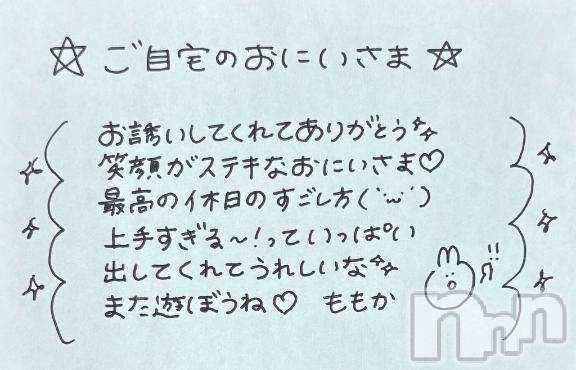 ☆ ご自宅のおにいさま ☆
お誘いしてくれてありがとう✨
笑顔がステキなおにいさま♡
最高の休日のすごし方(˙ω˙)
上手すぎる〜!っていっぱい
出してくれてうれしいな✨
また遊ぼうね♡ ももか
!!